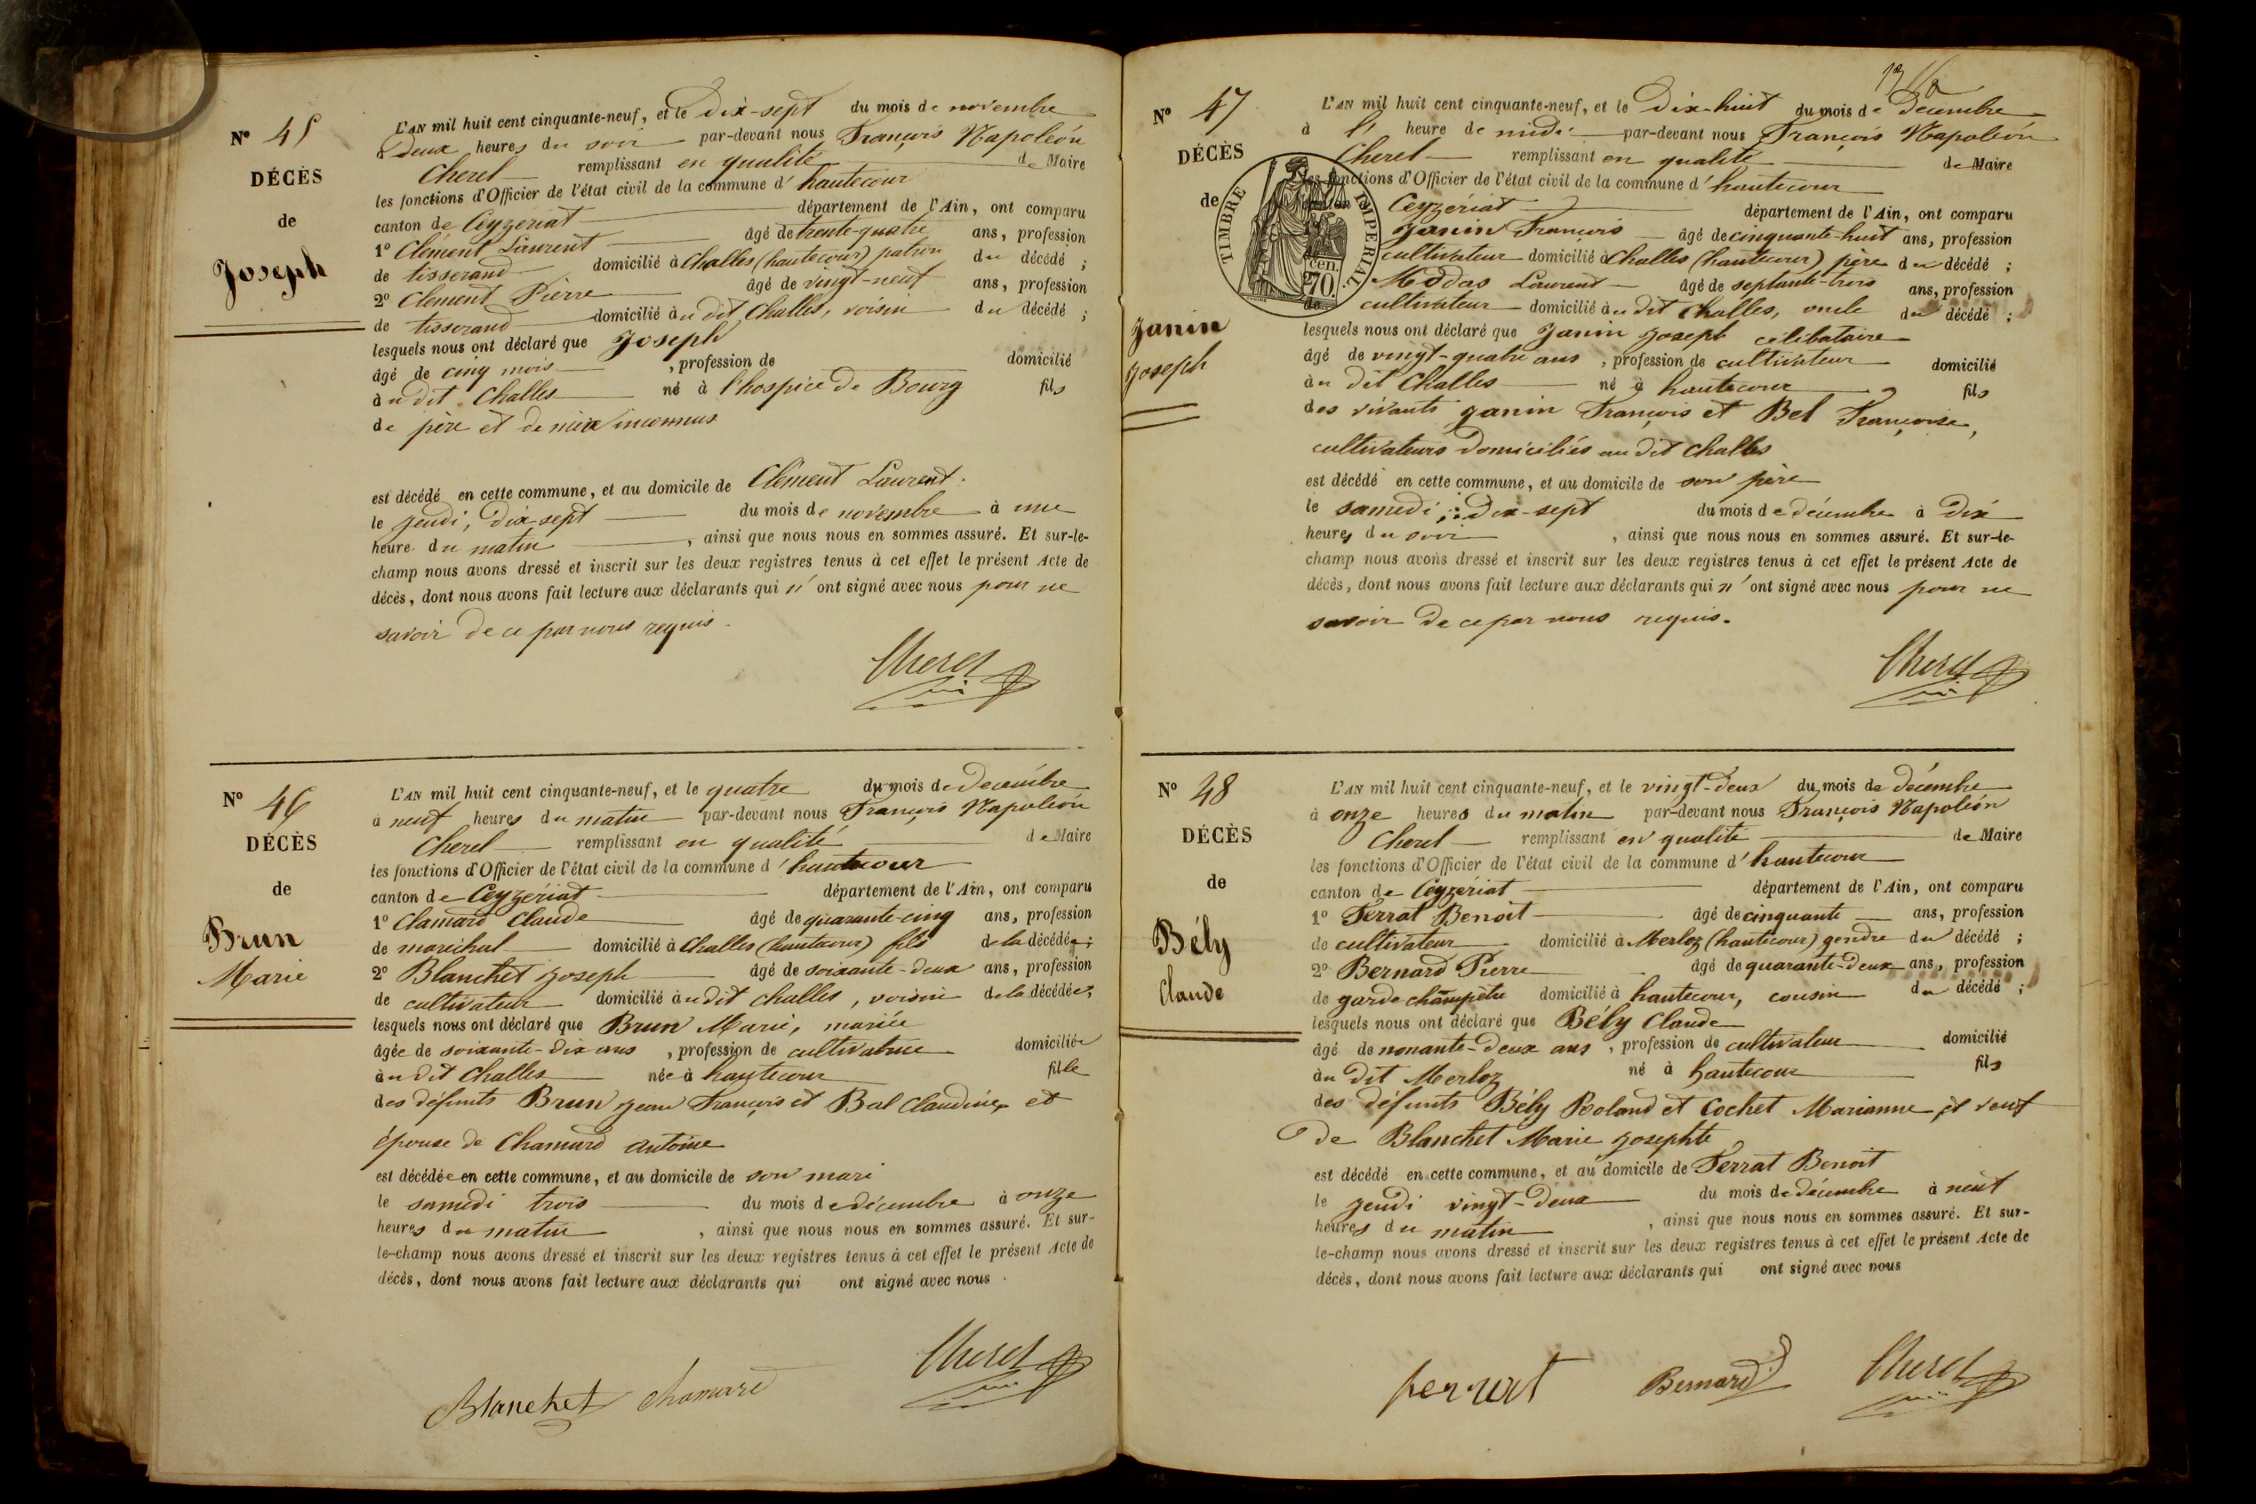 Nº 45
DÉCÈS
de
Joseph
L'AN mil huit cent cinquante-neuf, et le Dix-sept du mois de novembre
à Deux heures du soir par-devant nous François Napoléon
Cherel remplissant en qualité de Maire
les fonctions d'Officier de l'état civil de la commune d'hautecour
canton de Ceyzeriat département de l'Ain, ont comparu
1º Clément Laurent âgé de trente-quatre ans, profession
de tisserand domicilié à Challes (hautecour) patron du décédé ;
2º Clément Pierre âgé de vingt-neuf ans, profession
de tisserand domicilié au dit Challes, voisin du décédé ;
lesquels nous ont déclaré que Joseph
âgé de cinq mois , profession de domicilié
au dit Challes né à l'hospice de Bourg fils
de père et de mère inconnus
est décédé en cette commune, et au domicile de Clément Laurent.
le jeudi, dix sept du mois de novembre à une
heure du matin , ainsi que nous nous en sommes assuré. Et sur-le-
champ nous avons dressé et inscrit sur les deux registres tenus à cet effet le présent Acte de
décès, dont nous avons fait lecture aux déclarants qui n'ont signé avec nous pour ne
savoir de ce par nous requis.
Cherel
Nº 46
DÉCÈS
de
Brun
Marie
L'AN mil huit cent cinquante-neuf, et le quatre du mois de Decembre
à neuf heures du matin par-devant nous François Napoléon
Cherel remplissant en qualité de Maire
les fonctions d'Officier de l'état civil de la commune d'hautecour
canton de Ceyzériat département de l'Ain, ont comparu
1º Chamard Claude âgé de quarante-cinq ans, profession
de maréchal domicilié à Challes (hautecour) fils de la décédée ;
2º Blanchet Joseph âgé de soixante-deux ans, profession
de cultivateur domicilié au dit Challes, voisin de la décédée ;
lesquels nous ont déclaré que Brun Marie, mariée
âgée de soixante-dix ans , profession de cultivatrice domiciliée
au dit Challes née à hautecour fille
des défunts Brun Jean François et Bal Claudine, et
épouse de Chamard Antoine
est décédée en cette commune, et au domicile de son mari
le samedi trois du mois de décembre à onze
heures du matin , ainsi que nous nous en sommes assuré. Et sur-
le-champ nous avons dressé et inscrit sur les deux registres tenus à cet effet le présent Acte de
décès, dont nous avons fait lecture aux déclarants qui ont signé avec nous
Blanchet Chamard Cherel
Nº 47
DÉCÈS
de
Janin
Joseph
TIMBRE IMPERIAL
cen.
70.
L'AN mil huit cent cinquante-neuf, et le Dix-huit du mois de Décembre
à l' heure de midi par-devant nous François Napoléon
Cherel remplissant en qualité de Maire
les fonctions d'Officier de l'état civil de la commune d'hautecour
Ceyzériat département de l'Ain, ont comparu
Janin François âgé de cinquante-huit ans, profession
cultivateur domicilié à Challes (hautecour) père du décédé ;
Laurent âgé de septante-trois ans, profession
de cultivateur domicilié au dit Challes, oncle du décédé ;
lesquels nous ont déclaré que Janin Joseph célibataire
âgé de vingt-quatre ans , profession de cultivateur domicilié
au dit Challes né à hautecour fils
des vivants Janin François et Bel Françoise,
cultivateurs domiciliés au dit Challes
est décédé en cette commune, et au domicile de son père
le samedi, Dix-sept du mois de décembre à dix
heures du soir , ainsi que nous nous en sommes assuré. Et sur-le-
champ nous avons dressé et inscrit sur les deux registres tenus à cet effet le présent Acte de
décès, dont nous avons fait lecture aux déclarants qui n'ont signé avec nous pour ne
savoir de ce par nous requis.
Cherel
Nº 48
DÉCÈS
de
Bély
Claude
L'AN mil huit cent cinquante-neuf, et le vingt-deux du mois de décembre
à onze heures du matin par-devant nous François Napoléon
Cherel remplissant en qualité de Maire
les fonctions d'Officier de l'état civil de la commune d'hautecour
canton de Ceyzériat département de l'Ain, ont comparu
1º Ferrat Benoit âgé de cinquante ans, profession
de cultivateur domicilié à Merloz (hautecour) gendre du décédé ;
2º Bernard Pierre âgé de quarante-deux ans, profession
de garde champêtre domicilié à hautecour, cousin du décédé ;
lesquels nous ont déclaré que Bély Claude
âgé de nonante-deux ans , profession de cultivateur domicilié
au dit Merloz né à hautecour fils
des défunts Bély Roland et Cochet Marianne, et veuf
de Blanchet Marie Josephte
est décédé en cette commune, et au domicile de Ferrat Benoit
le jeudi vingt-deux du mois de décembre à neuf
heures du matin , ainsi que nous nous en sommes assuré. Et sur-
le-champ nous avons dressé et inscrit sur les deux registres tenus à cet effet le présent Acte de
décès, dont nous avons fait lecture aux déclarants qui ont signé avec nous
ferrat Bernard Cherel